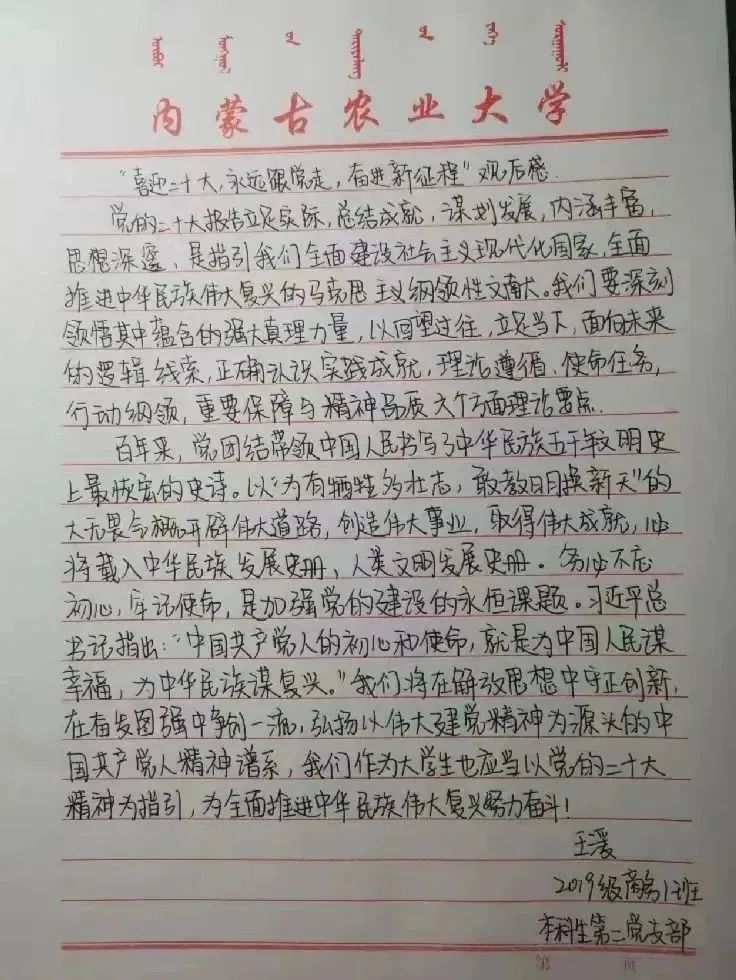 内蒙古农业大学
“喜迎二十大,永远跟党走,奋进新征程”观后感.
党的二十大报告立足实际,总结成就,谋划发展,内涵丰富,
思想深邃,是指引我们全面建设社会主义现代化国家,全面
推进中华民族伟大复兴的马克思主义纲领性文献。我们要深刻
领悟其中蕴含的强大真理力量,以回望过往,立足当下,面向未来
的逻辑线索,正确认识实践成就,理论遵循、使命任务,
行动纲领,重要保障与精神品质六个方面理论要点.
百年来,党团结带领中国人民书写了中华民族五千年文明史
上最恢宏的史诗。以“为有牺牲多壮志,敢教日月换新天”的
大无畏气概开辟伟大道路,创造伟大事业,取得伟大成就,必
将载入中华民族发展史册,人类文明发展史册。务必不忘
初心,牢记使命,是加强党的建设的永恒课题。习近平总
书记指出:“中国共产党人的初心和使命,就是为中国人民谋
幸福,为中华民族谋复兴。”我们将在解放思想中守正创新,
在奋发图强中争创一流,弘扬以伟大建党精神为源头的中
国共产党人精神谱系,我们作为大学生也应当以党的二十大
精神为指引,为全面推进中华民族伟大复兴努力奋斗!
王
2019级商务1班
本科生第二党支部
第 页